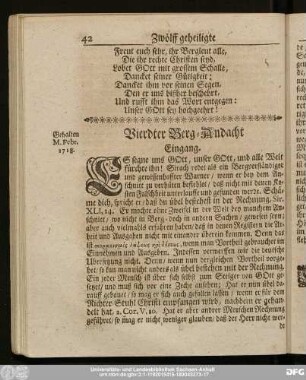 42 Zwölff geheiligte
Freut euch sehr, ihr Bergleut alle,
Die ihr rechte Christen seyd,
Lobet GOtt mit grossem Schalle,
Dancket seiner Gütigkeit;
Dancket ihm vor seinen Segen,
Den er uns bißher beschehrt,
Und rufft ihm das Wort entgegen:
Unser GOtt sey hochgeehrt!
Gehalten
M. Febr.
1718.
Vierdter Berg-Andacht
Eingang.
ES segne uns GOtt, unser GOtt, und alle Welt
fürchte ihn! Sirach redet als ein Bergverständiger
und gewissenhaffter Warner, wenn er bey dem
schnitt zu verhüten befiehlet, daß nicht mit denen
sten Falschheit unterlauffe und gefunden werde. Schä-
me dich, spricht er, daß du übel bestehest in der Rechnung, Sir.
XLI, 24. Er mochte eine in der Welt bey manchem
schnitt, wo nicht in Berg- doch in andern Sachen, gewesen seyn;
aber auch vielmahls erfahren haben daß in denen Registern die
heit und Ausgaben nicht mit einander überein kommen. Denn
ist wenn man Vortheil gebrauchet im
Einnehmen und Ausgeben. Indessen verwerffen wir die deutsche
Ubersetzung nicht. Denn, wenn man dergleichen Vortheil vorge-
het, so kan man nicht anders als übel bestehen mit der Rechnung.
Ein jeder Mensch ist über sich selbst zum Steiger von GOtt ge-
setzet, und muß sich vor eine Zeche ansehen; Hat er nun sich wohl
gebauet, so mag er sich auch gefallen lassen, wenn er für dem
Richter-Stuhl Christi wird, nachdem er gehan-
delt hat. 2. Cor. V, 10. Hat er aber andrer Menschen Rechnung
geführet, so mag er nicht weniger glauben, daß der Herr nicht wer-
de